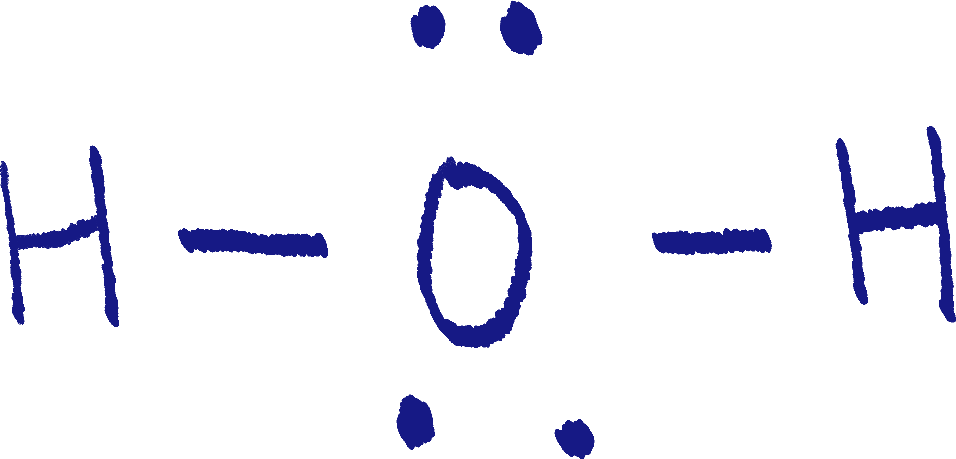 H - O - H